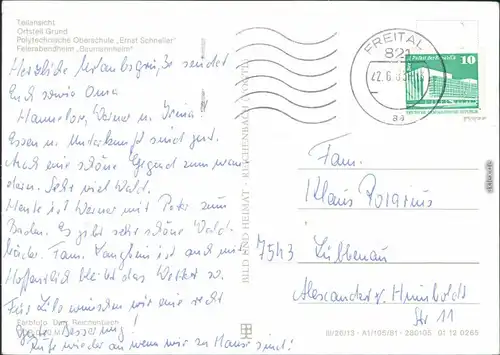 Teilansicht
Ortsteil Grund
Polytechnische Oberschule „Ernst Schneller"
Feierabendheim „Baumannheim"
Herzliche Urlaubsgrüße sendet
Euch sowie Oma
Hannelore, Werner u. Irina
Essen u. Unterkunft sind gut.
Auch eine schöne Gegend zum wan-
dern. Sehr viel Wald.
Heute ist Werner mit Peter zum
Baden. Es gibt sehr schöne Wald-
bäder. Fam. ist auch mit
Hoffentlich bleibt das Wetter so.
Für Lilo wünschen wir eine recht
gute Besserung!
Rufe wieder an wenn wir zu Hause sind!
Farbfoto: Reichenbach
BILD UND HEIMAT · REICHENBACH (VOGTL)
FREITAL
821
10
DEUTSCHE DEMOKRATISCHE REPUBLIK
Fam.
Klaus
7543 Lübbenau
Alexander v. Humboldt
Str 11
III/26/13 · A1/106/81 · 280105 01 12 0265